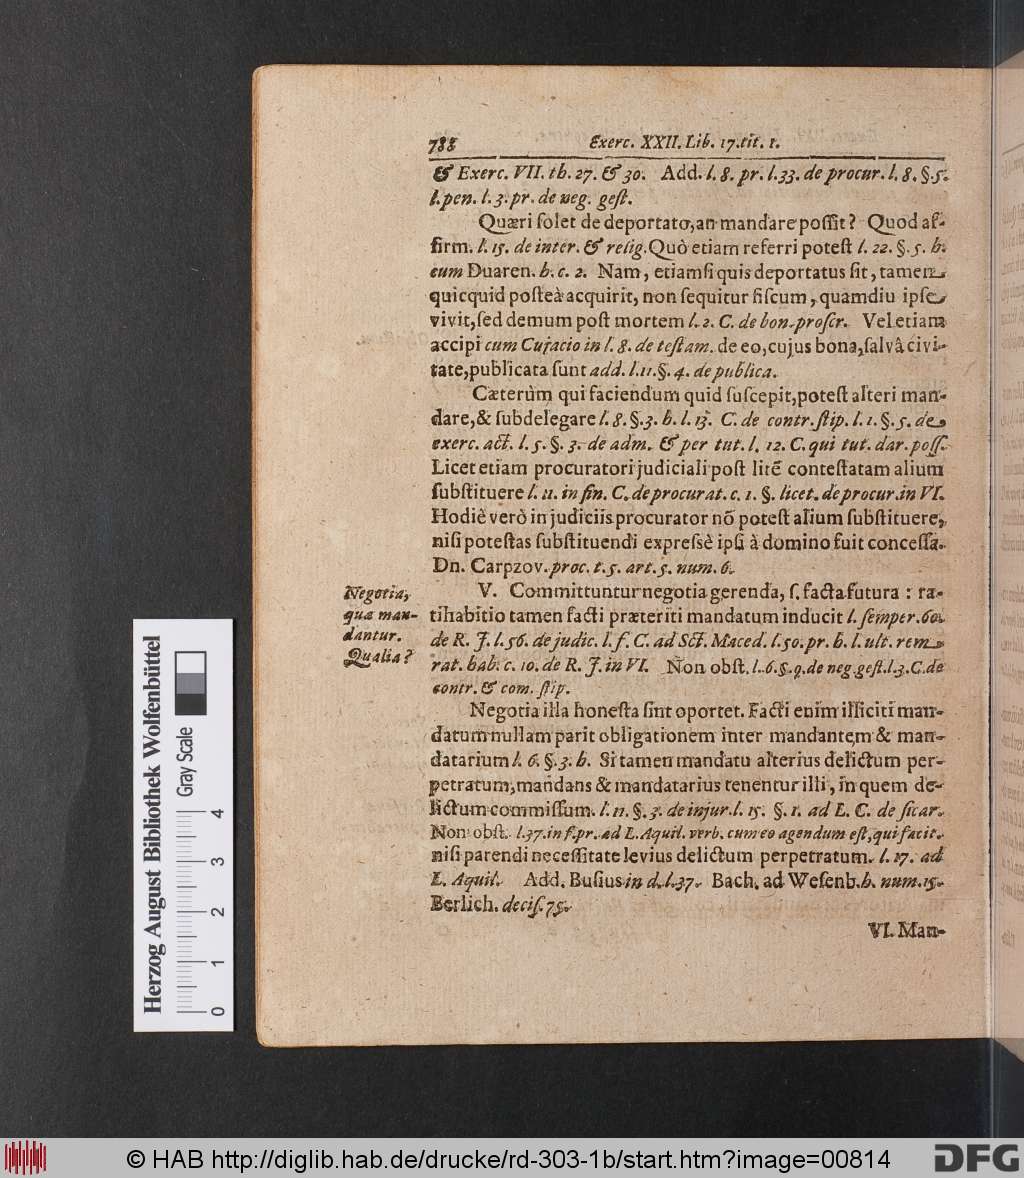 788 Exerc. XXII. Lib. 17. tit. 1.
& Exerc. VII. th. 27. & 30. Add. l. 8. pr. l. 33. de procur. l. 8. §. 5.
l. pen. l. 3. pr. de neg. geſt.
Quæri ſolet de deportato, an mandare poſſit? Quod af-
firm. l. 15. de inter. & relig. Quò etiam referri poteſt l. 22. §. 5. h.
cum Duaren. h. c. 2. Nam, etiamſi quis deportatus ſit, tamen
quicquid poſteà acquirit, non ſequitur fiſcum, quamdiu ipſe
vivit, ſed demum poſt mortem l. 2. C. de bon. proſcr. Vel etiam
accipi cum Cujacio in l. 8. de teſtam. de eo, cujus bona, ſalvâ civi-
tate, publicata ſunt add. l. 11. §. 4. de publica.
Cæterùm qui faciendum quid ſuſcepit, poteſt alteri man-
dare, & ſubdelegare l. 8. §. 3. h. l. 13. C. de contr. ſtip. l. 1. §. 5. de
exerc. act. l. 5. §. 3. de adm. & per tut. l. 12. C. qui tut. dar. poſſ.
Licet etiam procuratori judiciali poſt litẽ conteſtatam alium
ſubſtituere l. 11. in fin. C. de procurat. c. 1. §. licet. de procur. in VI.
Hodiè verò in judiciis procurator nõ poteſt alium ſubſtituere,
niſi poteſtas ſubſtituendi expreſsè ipſi à domino fuit conceſſa.
Dn. Carpzov. proc. t. 5. art. 5. num. 6.
Negotia,
quæ man-
dantur.
Qualia?
V. Committuntur negotia gerenda, ſ. facta futura: ra-
tihabitio tamen facti præteriti mandatum inducit l. ſemper. 60.
de R. J. l. 56. de judic. l. f. C. ad Sct. Maced. l. 50. pr. h. l. ult. rem
rat. hab. c. 10. de R. J. in VI. Non obſt. l. 6. §. 9. de neg. geſt. l. 3. C. de
contr. & com. ſtip.
Negotia illa honeſta ſint oportet. Facti enim illiciti man-
datum nullam parit obligationem inter mandantem & man-
datarium l. 6. §. 3. h. Si tamen mandatu alterius delictum per-
petratum, mandans & mandatarius tenentur illi, in quem de-
lictum commiſſum. l. 11. §. 3. de injur. l. 15. §. 1. ad L. C. de ſicar.
Non obſt. l. 37. in f. pr. ad L. Aquil. verb. cum eo agendum eſt, qui facit.
niſi parendi neceſſitate levius delictum perpetratum. l. 17. ad
L. Aquil. Add. Buſius in d. l. 37. Bach. ad Weſenb. h. num. 15.
Berlich. deciſ. 75.
VI. Man-
Herzog August Bibliothek Wolfenbüttel
Gray Scale
0 1 2 3 4
© HAB http://diglib.hab.de/drucke/rd-303-1b/start.htm?image=00814
DFG